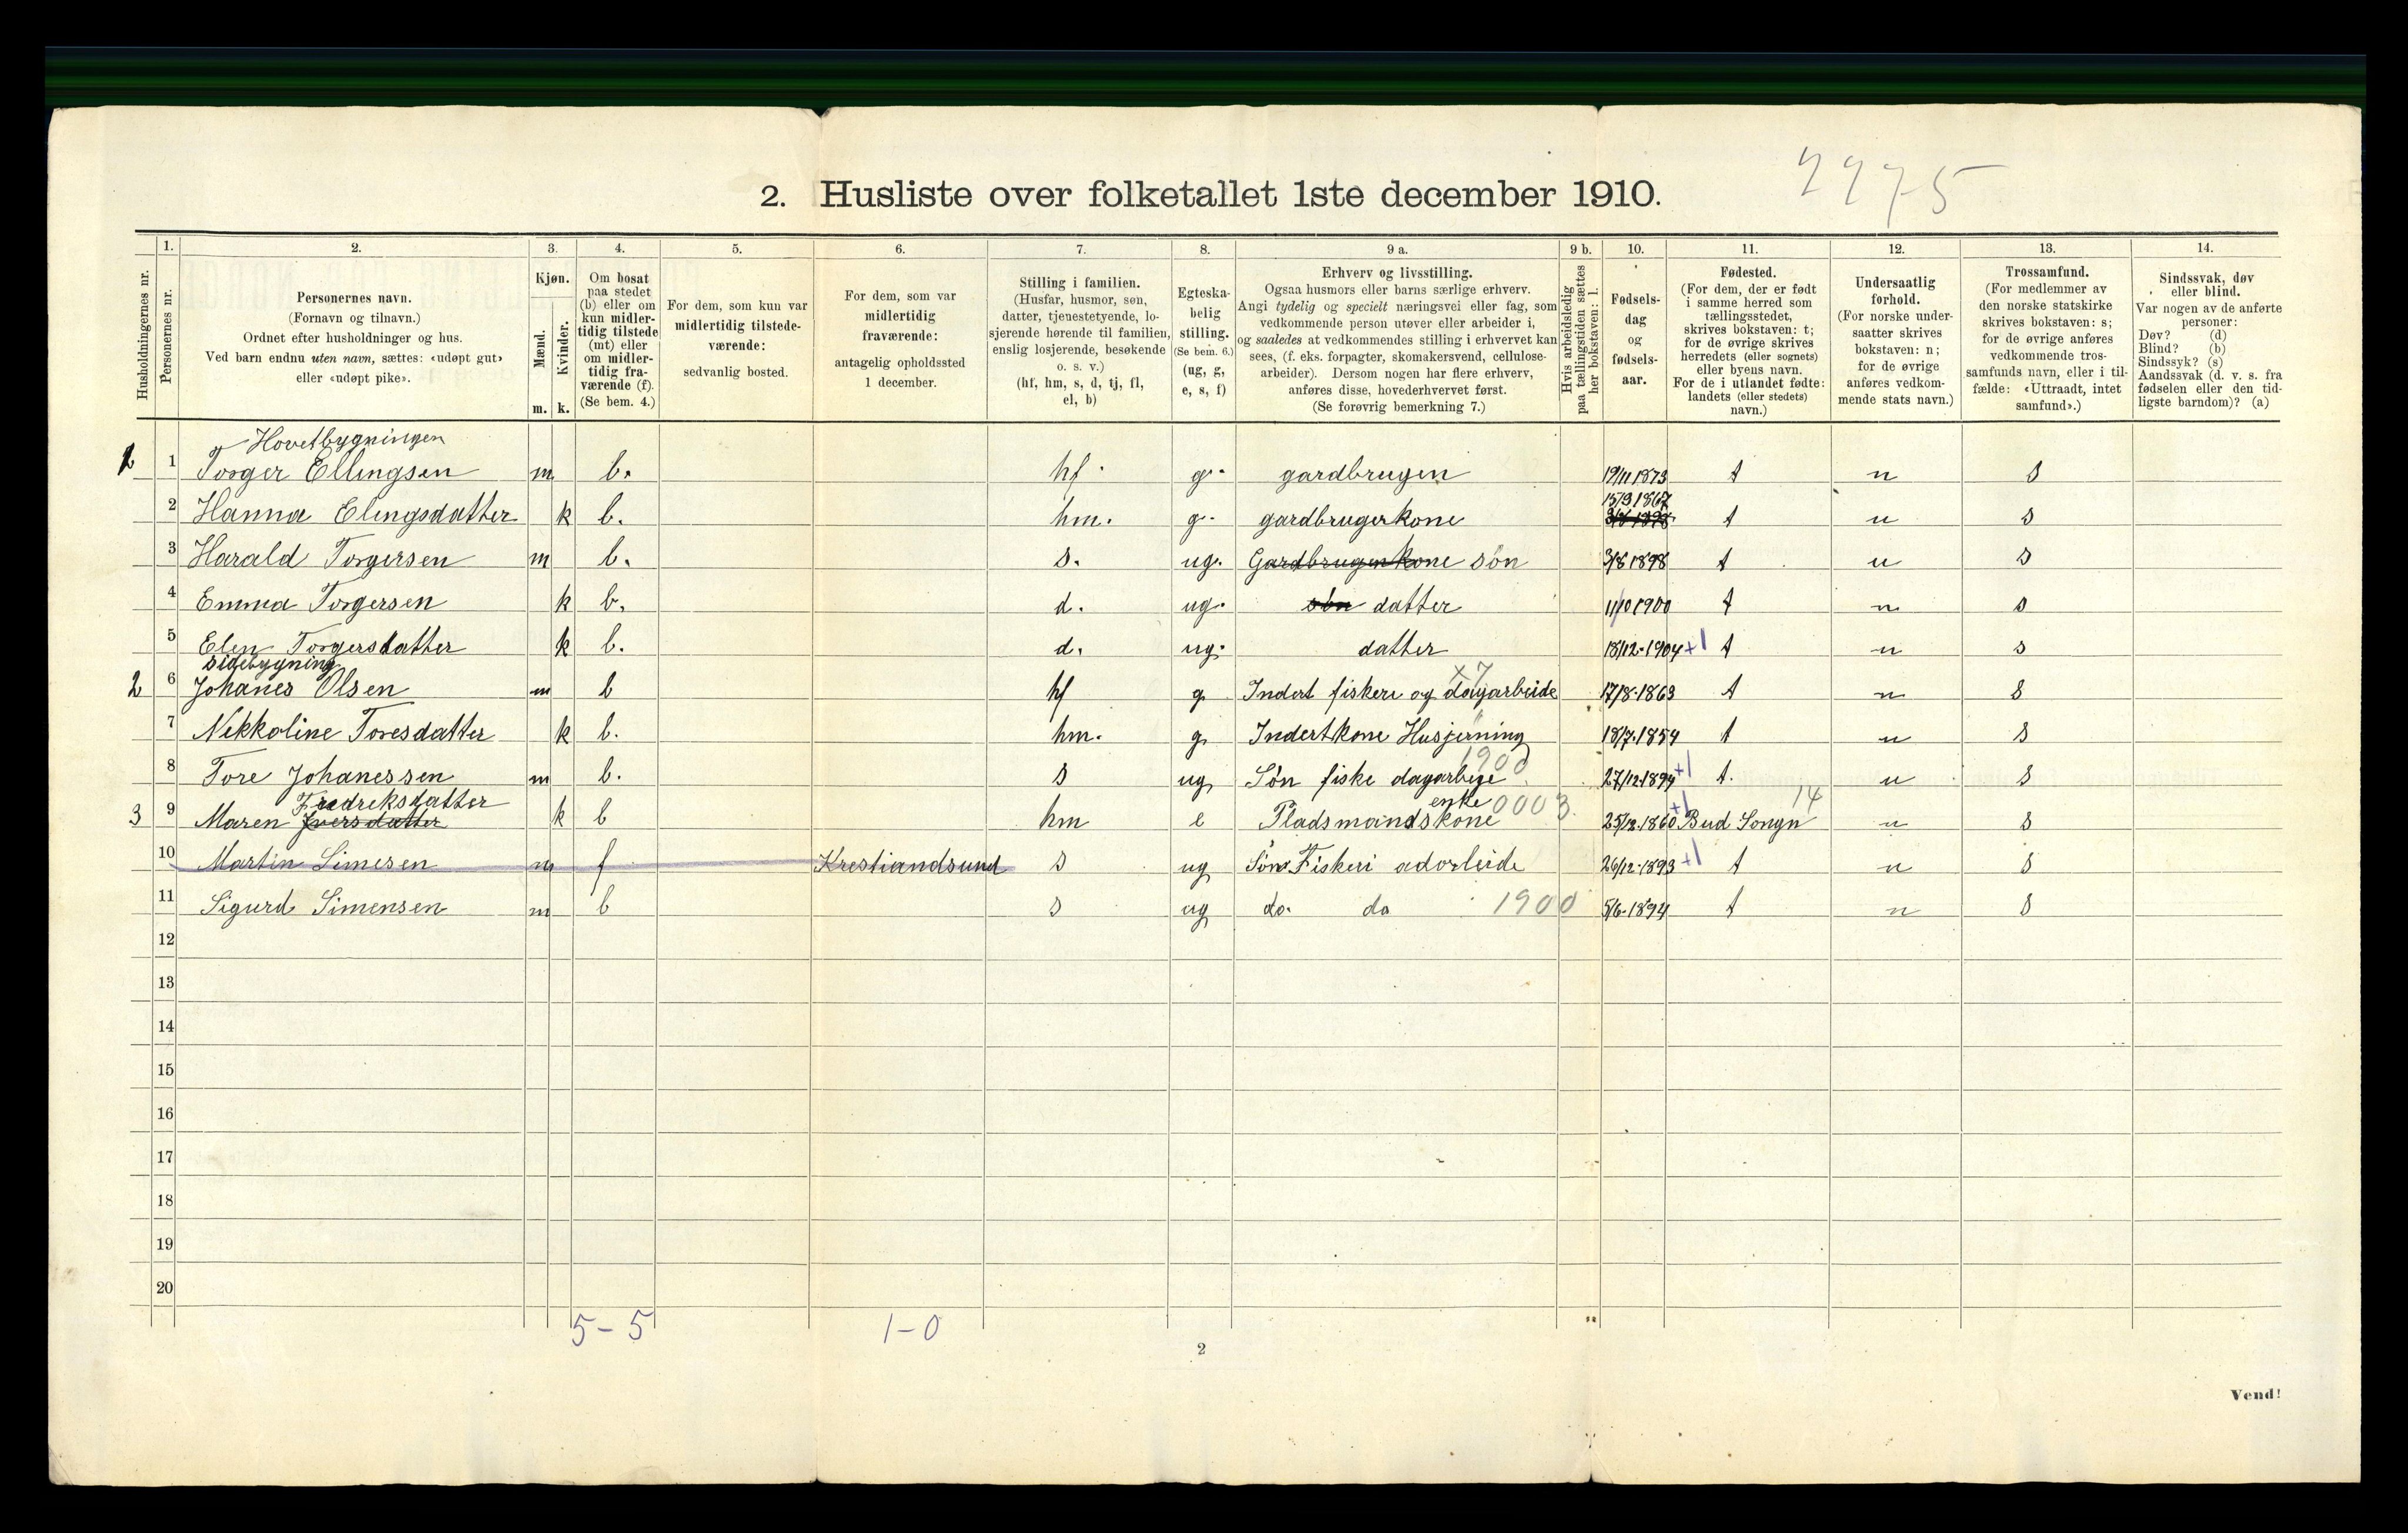 2. Husliste over folketallet 1ste december 1910.
Husholdningernes nr.
1. Personernes nr.
2. Personernes navn. (Fornavn og tilnavn.) Ordnet efter husholdninger og hus. Ved barn endnu uten navn, sættes: «udøpt gut» eller «udøpt pike».
3. Kjøn. Mænd. m. Kvinder. k.
4. Om bosat paa stedet (b) eller om kun midlertidig tilstede (mt) eller om midlertidig fraværende (f). (Se bem. 4.)
5. For dem, som kun var midlertidig tilstedeværende: sedvanlig bosted.
6. For dem, som var midlertidig fraværende: antagelig opholdssted 1 december.
7. Stilling i familien. (Husfar, husmor, søn, datter, tjenestetyende, losjerende hørende til familien, enslig losjerende, besøkende o. s. v.) (hf, hm, s, d, tj, fl, el, b)
8. Egteskabelig stilling. (Se bem. 6.) (ug, g, e, s, f)
9 a. Erhverv og livsstilling. Ogsaa husmors eller barns særlige erhverv. Angi tydelig og specielt næringsvei eller fag, som vedkommende person utøver eller arbeider i, og saaledes at vedkommendes stilling i erhvervet kan sees, (f. eks. forpagter, skomakersvend, cellulosearbeider). Dersom nogen har flere erhverv, anføres disse, hovederhvervet først. (Se forøvrig bemerkning 7.)
9 b. Hvis arbeidsledig paa tællingstiden sættes her bokstaven: l.
10. Fødselsdag og fødselsaar.
11. Fødested. (For dem, der er født i samme herred som tællingsstedet, skrives bokstaven: t; for de øvrige skrives herredets (eller sognets) eller byens navn. For de i utlandet fødte: landets (eller stedets) navn.)
12. Undersaatlig forhold. (For norske undersaatter skrives bokstaven: n; for de øvrige anføres vedkommende stats navn.)
13. Trossamfund. (For medlemmer av den norske statskirke skrives bokstaven: s; for de øvrige anføres vedkommende trossamfunds navn, eller i tilfælde: «Uttraadt, intet samfund».)
14. Sindssvak, døv eller blind. Var nogen av de anførte personer: Døv? (d) Blind? (b) Sindssyk? (s) Aandssvak (d. v. s. fra fødselen eller den tidligste barndom)? (a)
Hovetbygningen
1 1 Torger Ellingsen m b. hf. g. gardbrugen 19/11 1873 t n s
15/9 1867
2 Hanna Elingsdatter k b. hm. g. gardbrugerkone 3/8 1898 t n s
3 Harald Torgersen m b. s. ug. Gardbrugenkone søn 3/8 1898 t n s
4 Emma Torgersen k b. d. ug. søn datter 11/10 1900 t n s
5 Elen Torgersdatter k b. d. ug. datter 18/12-1904 +1 t n s
sidebygning
2 6 Johanes Olsen m b hf g Indert fiskere og dagarbeide 17/8-1863 t n s
7 Nekkoline Toresdatter k b. hm. g Indertkone Husjerning 18/7-1854 t n s
1900
8 Tore Johanessen m b. s ug Søn fiske dagarbege 27/12-1894 +1 t. n s
Fredreksdatter enke 0003 +1 14
3 9 Maren Iversdatter k b hm e Pladsmandskone 25/12-1860 Bud Songn n s
10 Martin Simesen m f Krestiandsund s ug Søn Fiskeri adorbeide 26/12-1893 +1 t n s
11 Sigurd Simensen m b s ug do. do 1900 5/6-1894 t n s
12
13
14
15
16
17
18
19
20
5-5 1-0
2
Vend!